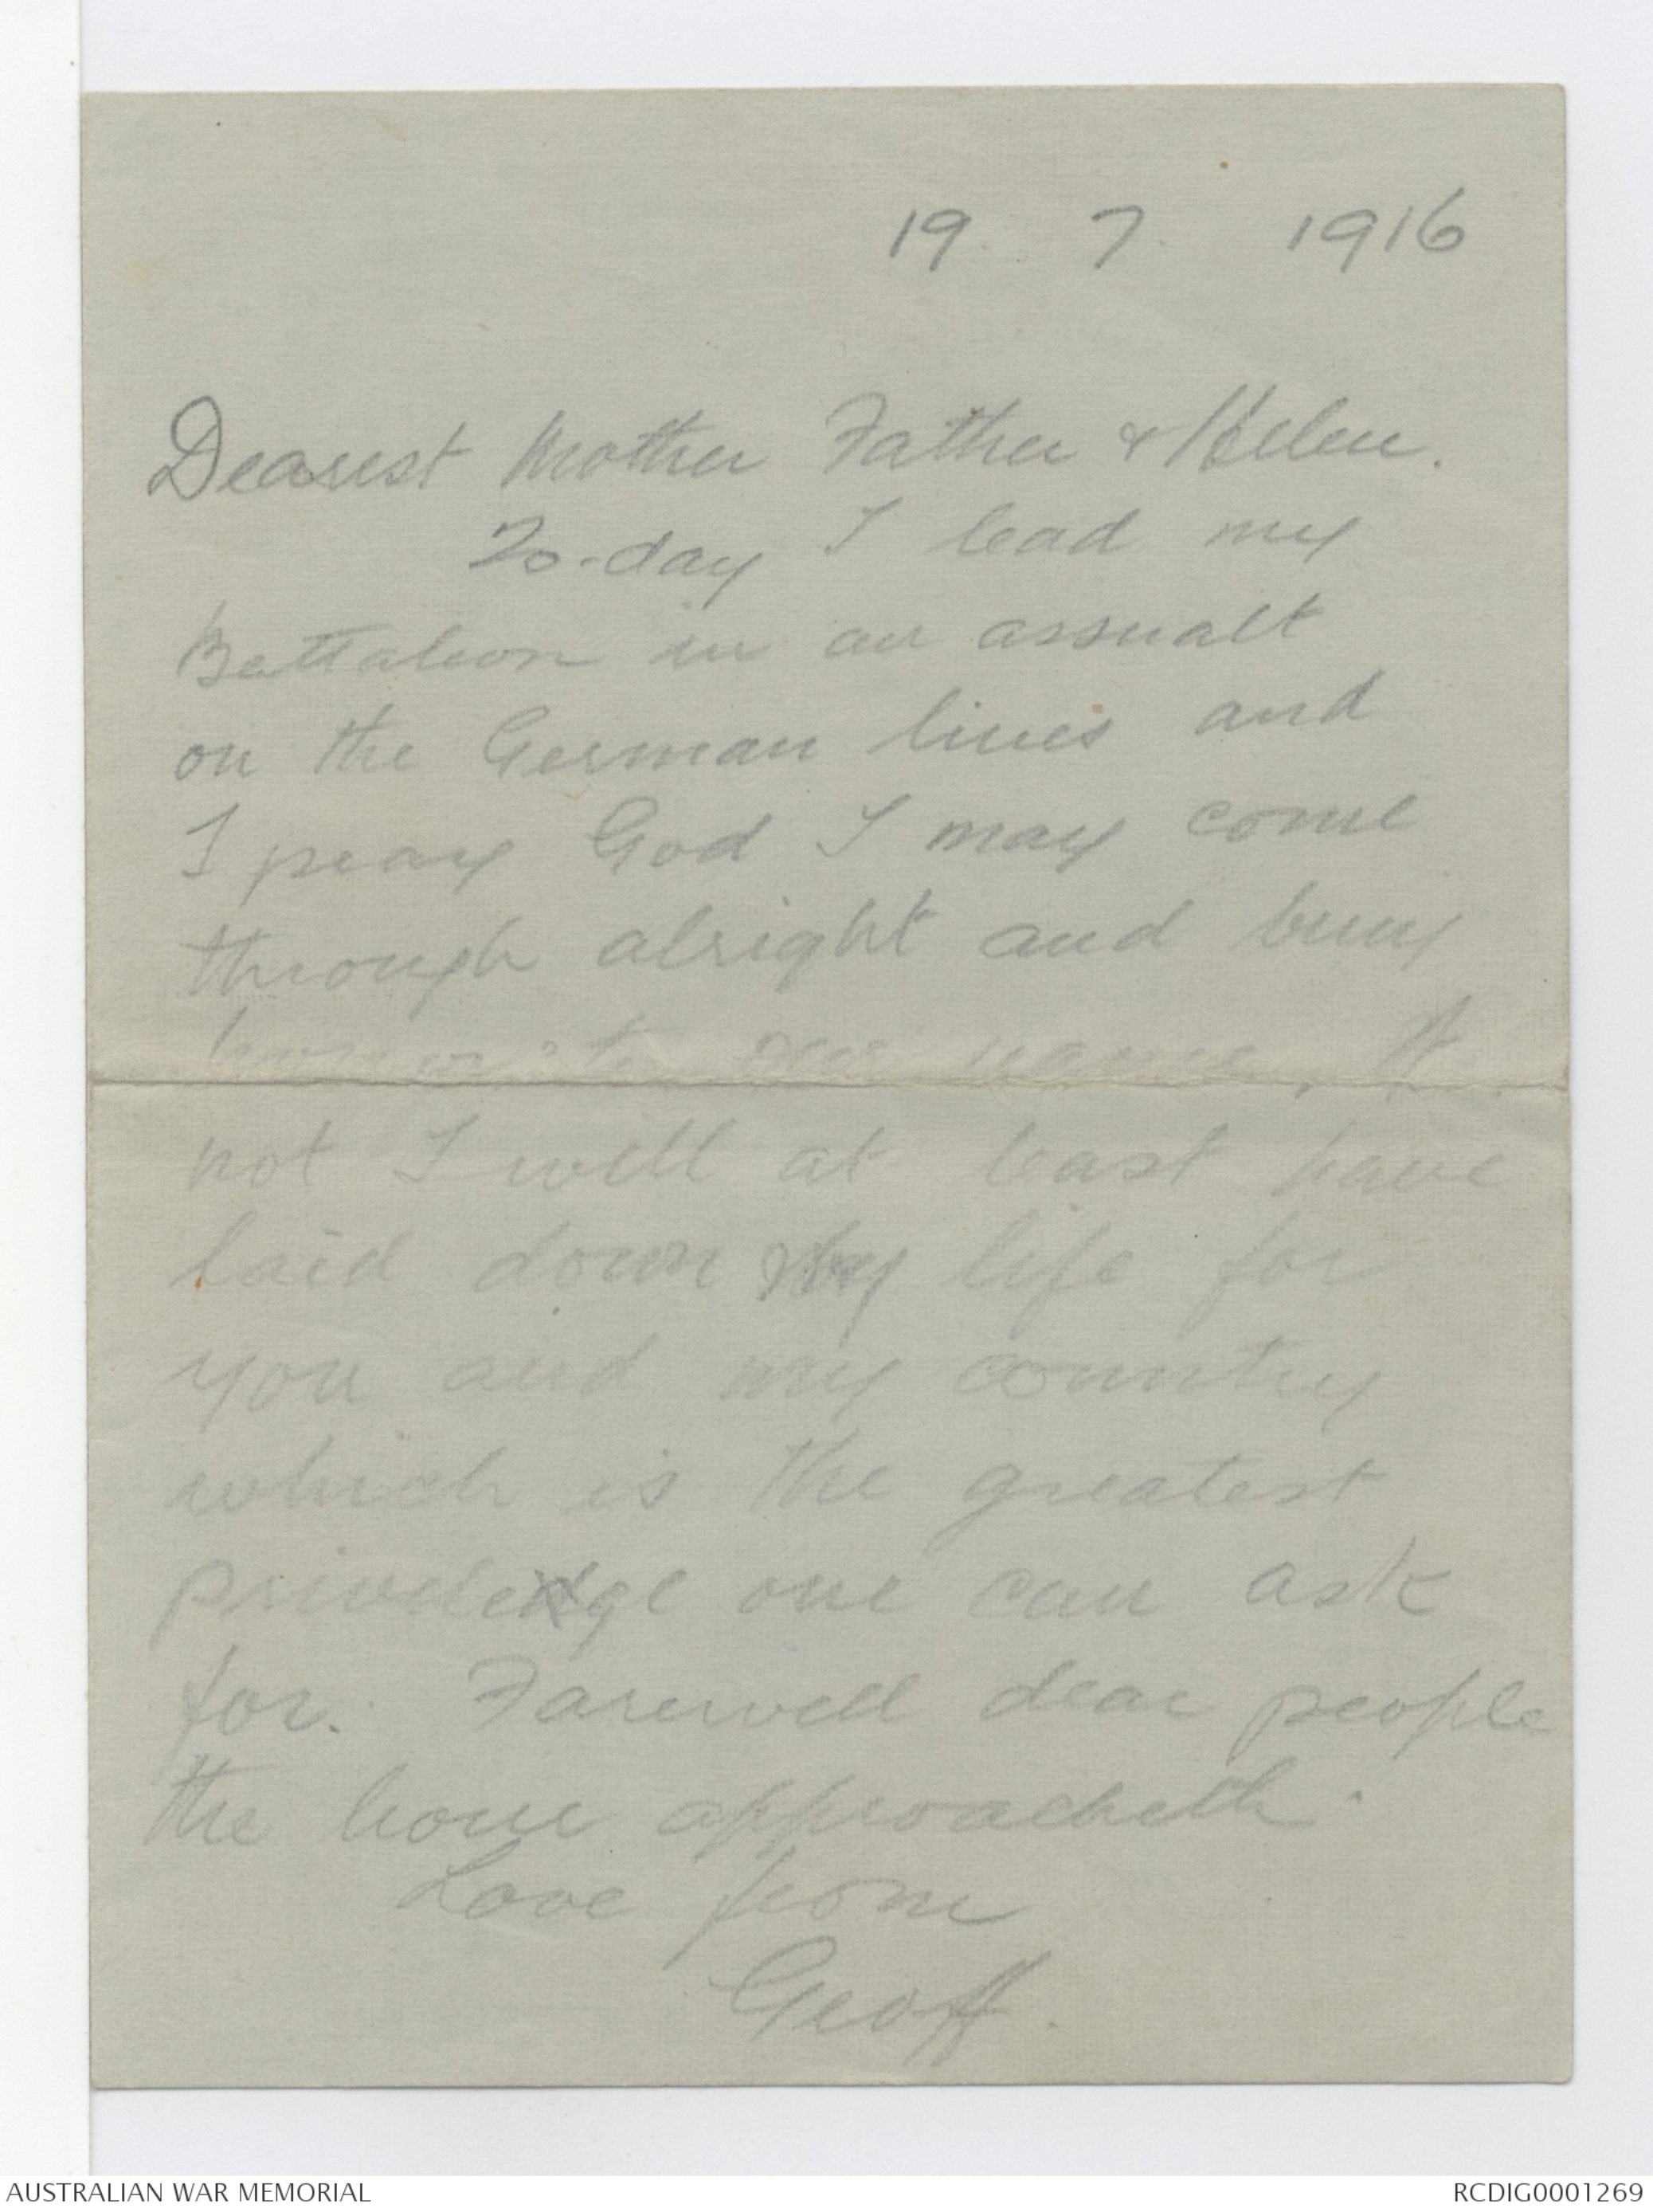 19. 7. 1916
Dearest Mother Father & Helen.
To-day I lead my
Battalion in an assualt
on the German lines and
I pray God I may come
through alright and bring
honour to our name. If
not I will at least have
laid down my life for
you and my country
which is the greatest
privelege one can ask
for. Farewell dear people
the hour approacheth.
Love from
Geoff.
AUSTRALIAN WAR MEMORIAL
RCDIG0001269